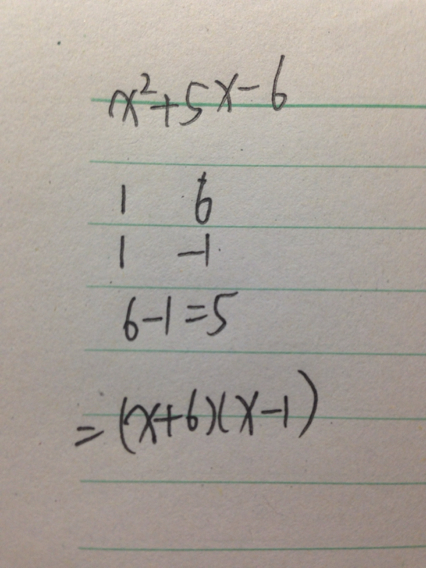 x²+5x-6
1 6
1 -1
6-1=5
=(x+6)(x-1)